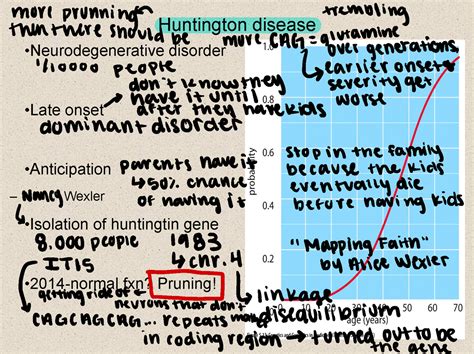 more prunning
than there should be
Huntington disease
•Neurodegenerative disorder
1/10000 people
more CAG = glutamine
trembling
over generations,
earlier onset &
severity get
worse
•Late onset
don't know they
have it until
after they have kids
dominant disorder
•Anticipation
parents have it
↳ 50% chance
of having it
– Nancy Wexler
•Isolation of huntingtin gene
8,000 people
1983
↳ chr. 4
IT15
•2014-normal fxn? Pruning!
getting ride of
neurons that don't
CAGCAGCAG... repeats
in coding region → turned out to be
the gene
linkage
disequilibrium
stop in the family
because the kids
eventually die
before having kids
"Mapping Faith"
by Alice Wexler
probability
1.0
0.8
0.6
0.2
0 10 20 30 40 50 60 70
age (years)